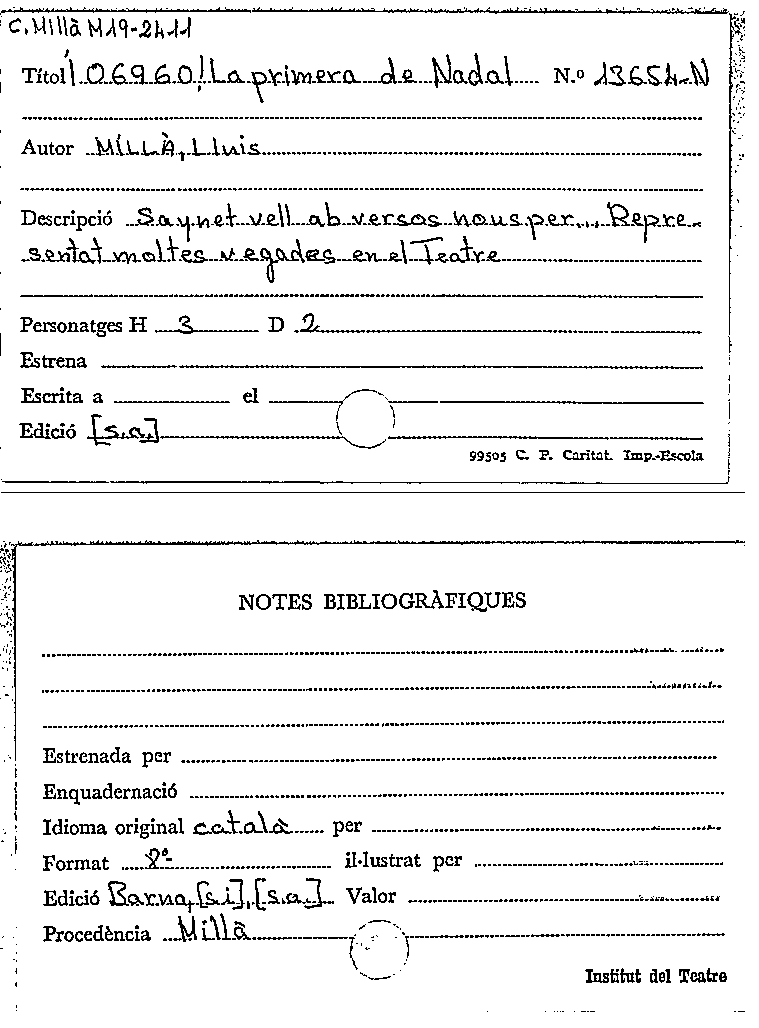 C. Millà M19-2411
Títol ¡06960! La primera de Nadal N.º 13654-N
Autor MILLÀ, Lluis
Descripció Saynet vell ab versos nous per... Repre-
sentat moltes vegades en el Teatre
Personatges H 3 D 2
Estrena
Escrita a el
Edició [s.a.]
99505 C. P. Caritat. Imp.-Escola
NOTES BIBLIOGRÀFIQUES
Estrenada per
Enquadernació
Idioma original català per
Format 8º- il·lustrat per
Edició Barna, [s.i], [s.a.] Valor
Procedència Millà
Institut del Teatre